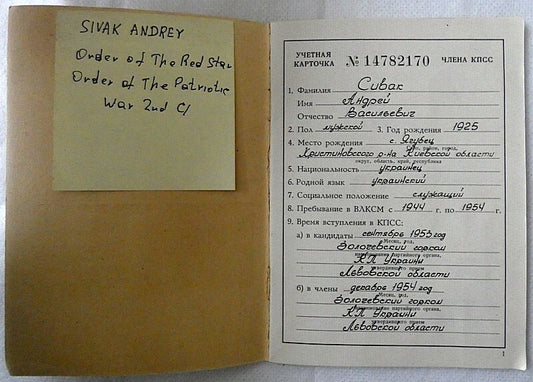 SIVAK ANDREY
Order of The Red Star
Order of The Patriotic
War 2nd C/
УЧЕТНАЯ КАРТОЧКА № 14782170 ЧЛЕНА КПСС
1. Фамилия Сивак
Имя Андрей
Отчество Васильевич
2. Пол мужской 3. Год рождения 1925
4. Место рождения с. Ягубец
село, район, город,
Христиновского р-на Киевской области
округ, область, край, республика
5. Национальность украинец
6. Родной язык украинский
7. Социальное положение служащий
8. Пребывание в ВЛКСМ с 1944 г. по 1954 г.
9. Время вступления в КПСС:
а) в кандидаты сентябрь 1953 год
Месяц, год,
Золочевский горком
наименование партийного органа,
КП Украини
утвердившего прием
Львовской области
б) в члены декабрь 1954 год
Месяц, год,
Золочевский горком
наименование партийного органа,
КП Украини
утвердившего прием
Львовской области
1